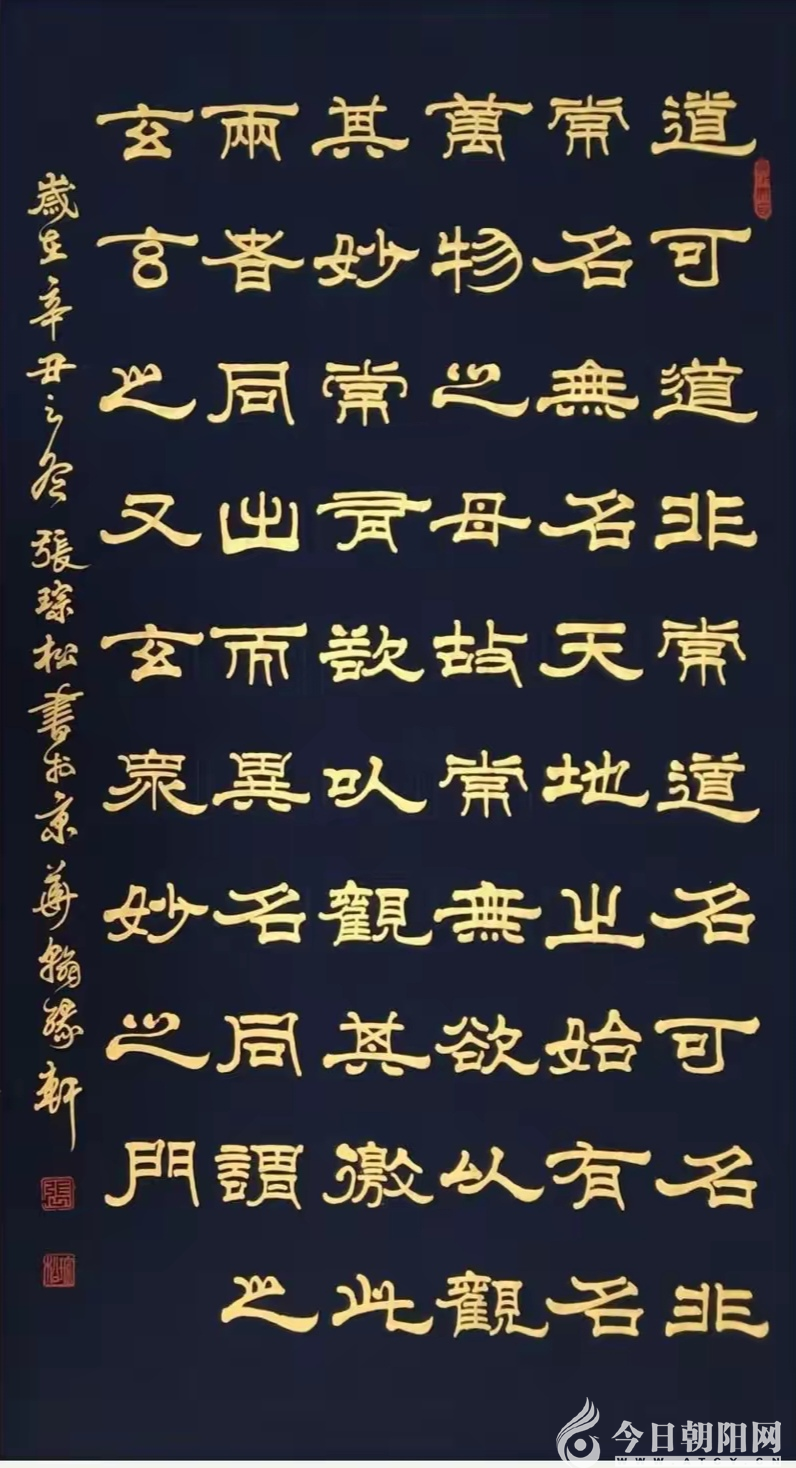 道可道非常道名可名非
常名無名天地之始有名
萬物之母故常無欲以觀
其妙常有欲以觀其徼此
兩者同出而異名同謂之
玄玄之又玄衆妙之門
歲在辛丑之冬張琮松書於京華翰緣軒
張
今日朝阳网
WWW.ATCX.CN